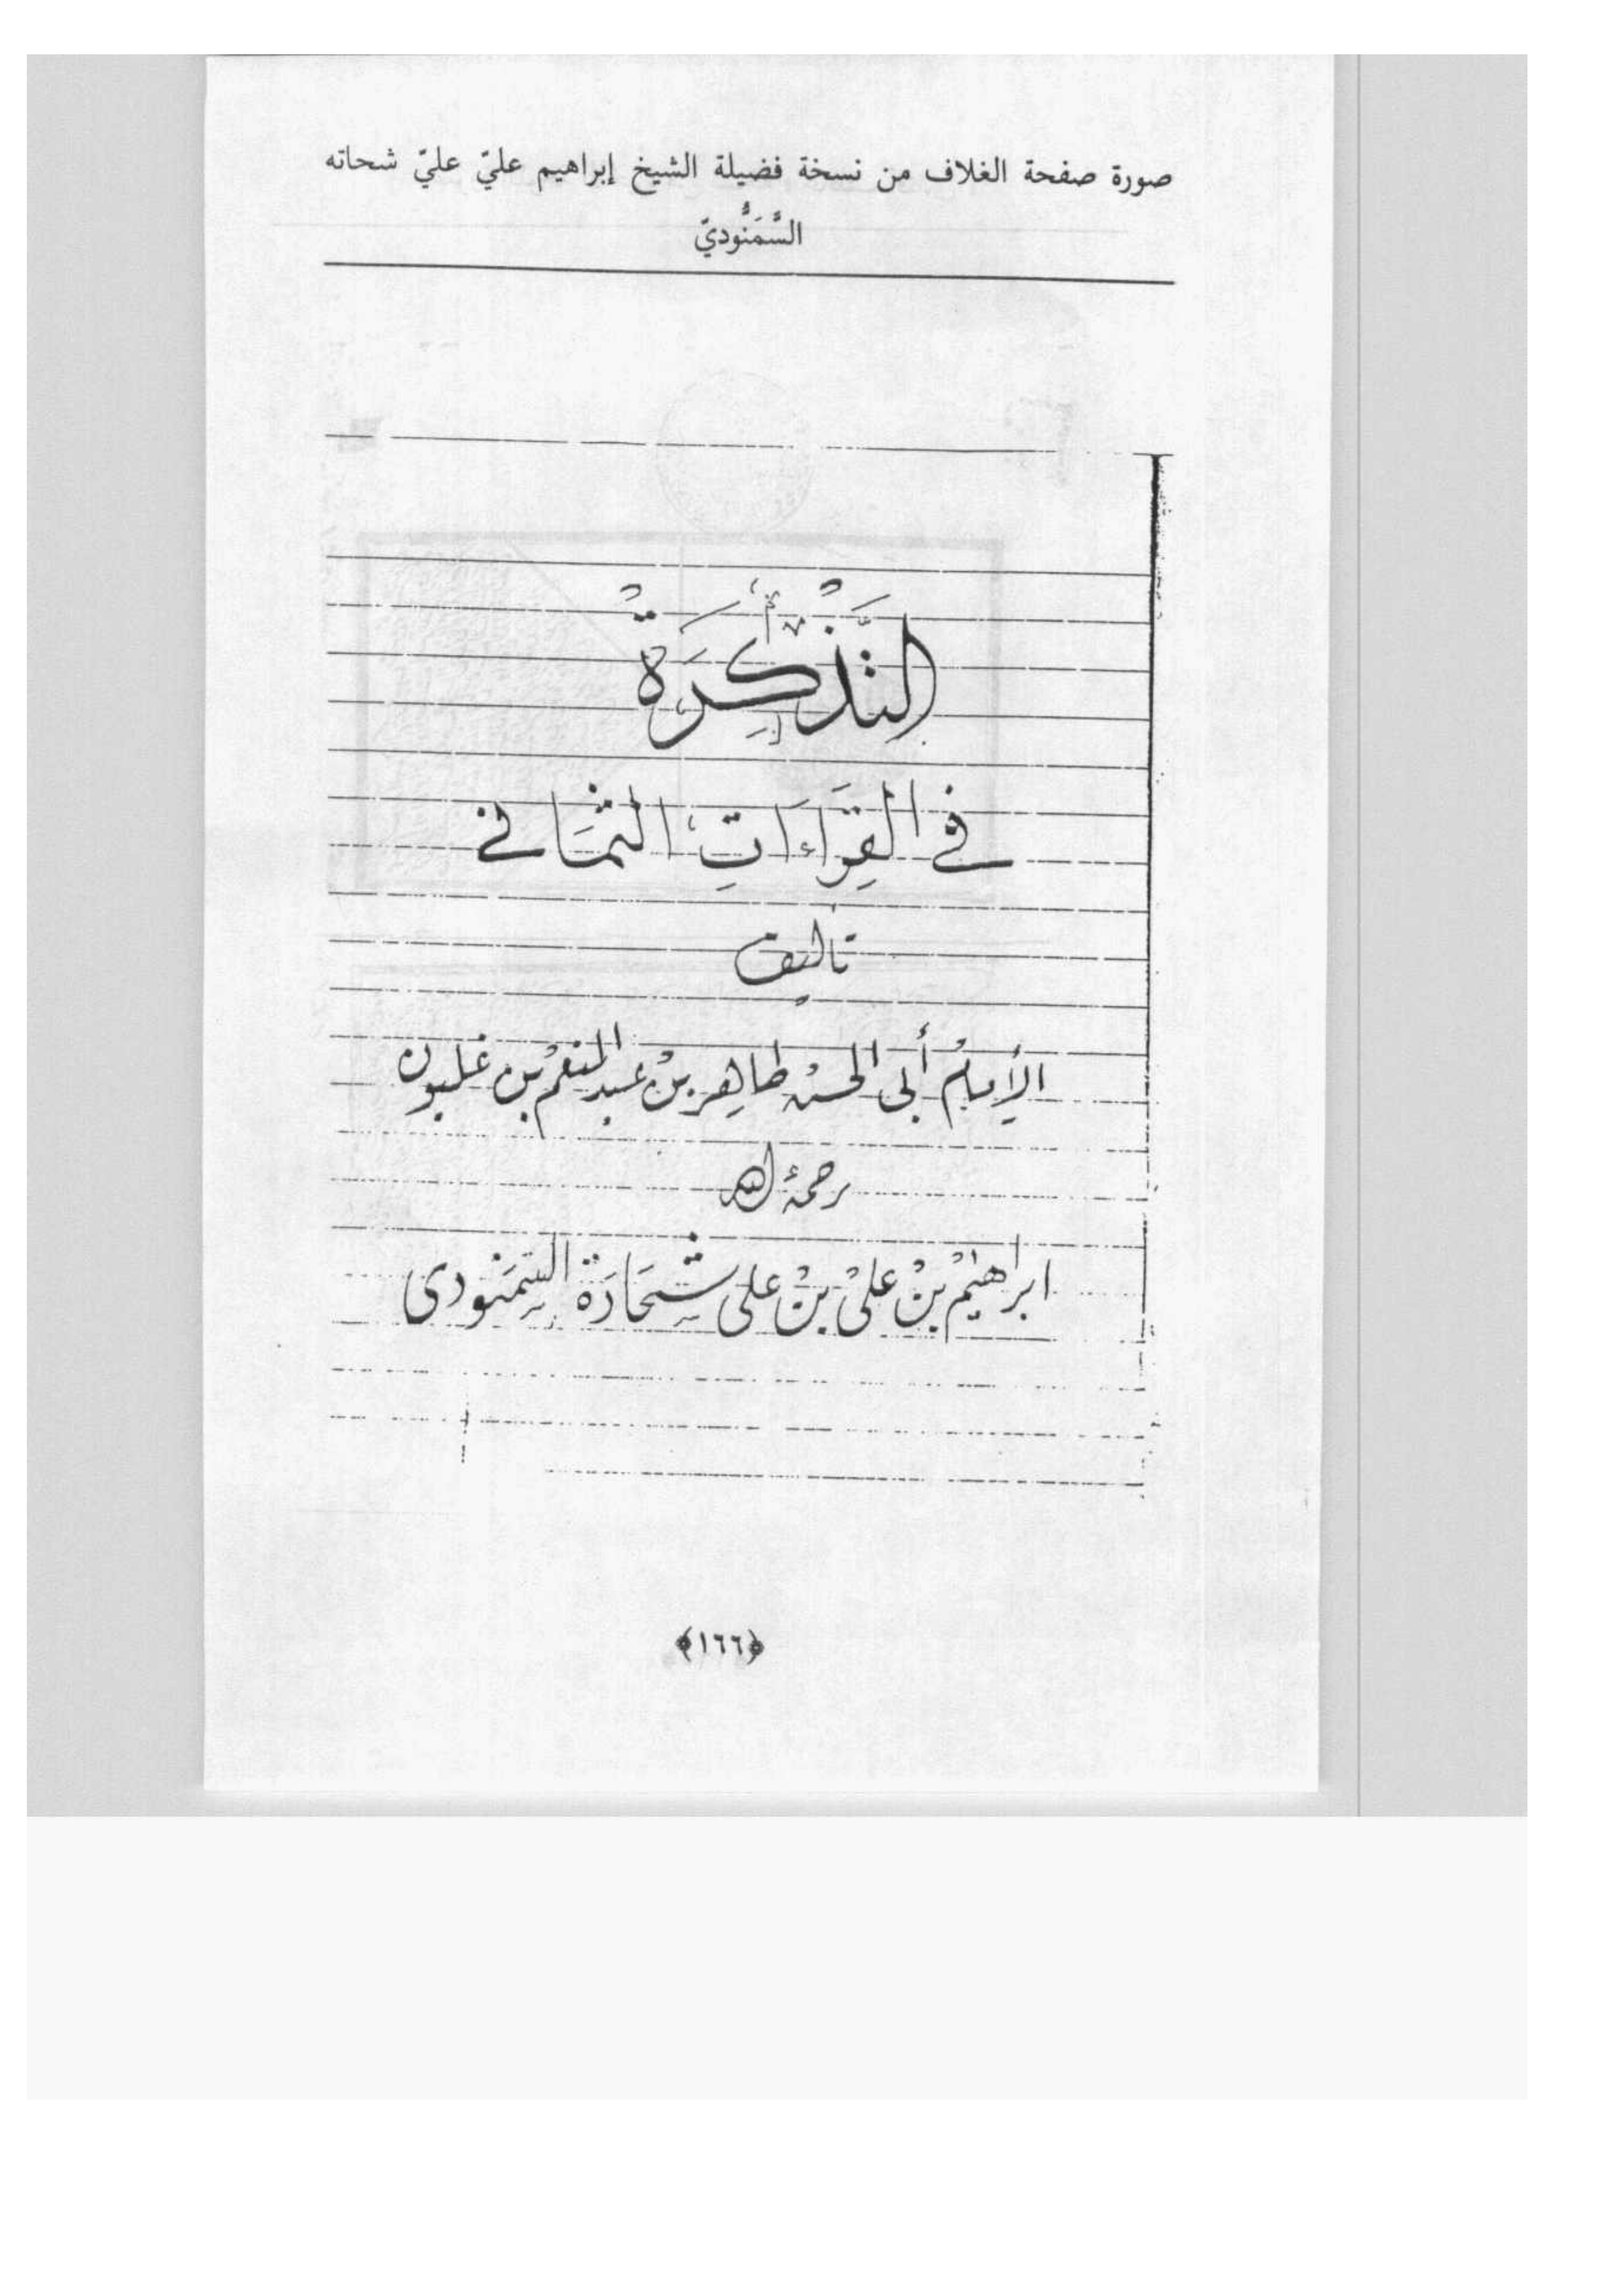 صورة صفحة الغلاف من نسخة فضيلة الشيخ إبراهيم عليّ عليّ شحاته
السَّمَنُّوديّ
التَّذْكِرَةُ
فى القِرَاءَاتِ الثمَانى
تأليف
الإِمامُ أبى الحسنْ طاهِر بنْ عبد المنعمْ بن غلبون
رحمهُ الله
ابراهيمْ بنْ علىْ بنْ على شِحَاتَة السِّمَنْودى
﴿١٦٦﴾